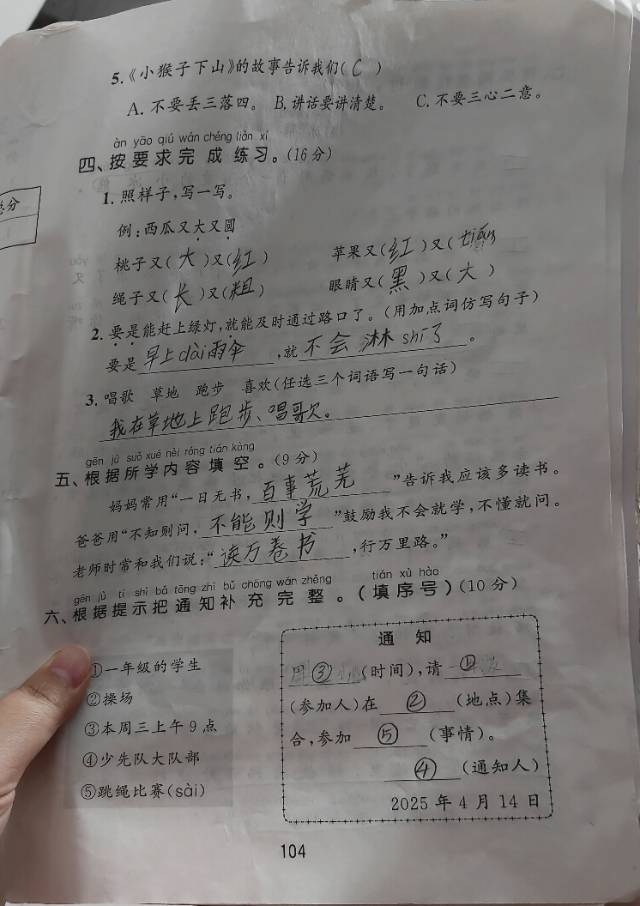 5.《小猴子下山》的故事告诉我们( C )
A. 不要丢三落四。 B. 讲话要讲清楚。 C. 不要三心二意。
àn yāo qiú wán chéng liàn xí
四、按要求完成练习。(16分)
1. 照样子,写一写。
例:西瓜又大又圆
桃子又( 大 )又( 红 ) 苹果又( 红 )又( tián )
绳子又( 长 )又( 粗 ) 眼睛又( 黑 )又( 大 )
2. 要是能赶上绿灯,就能及时通过路口了。(用加点词仿写句子)
要是 早上dài雨伞 ,就 不会淋shī了 。
3. 唱歌 草地 跑步 喜欢(任选三个词语写一句话)
我在草地上跑步、唱歌欠。
gēn jù suǒ xué nèi róng tián kòng
五、根据所学内容填空。(9分)
妈妈常用“一日无书, 百事荒芜 ”告诉我应该多读书。
爸爸用“不知则问, 不能则学 ”鼓励我不会就学,不懂就问。
老师时常和我们说:“ 读万卷书 ,行万里路。”
gēn jù tí shì bǎ tōng zhī bǔ chōng wán zhěng tián xù hào
六、根据提示把通知补充完整。(填序号)(10分)
通知
①一年级的学生
②操场
③本周三上午9点
④少先队大队部
⑤跳绳比赛(sài)
③ (时间),请 ①
(参加人)在 ② (地点)集
合,参加 ⑤ (事情)。
④ (通知人)
2025年4月14日
104
总分